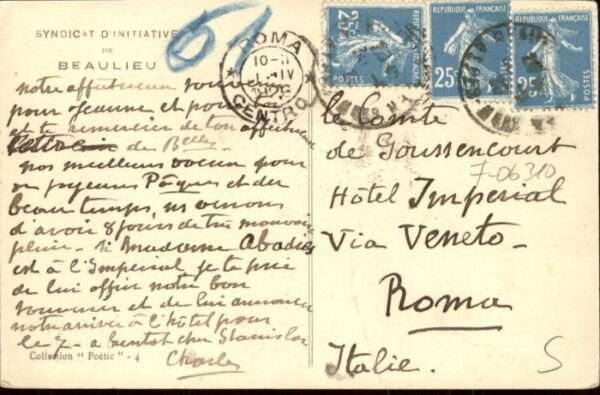 SYNDICAT D'INITIATIVE
DE
BEAULIEU
61
ROMA
CENTRO
10-11
IV
notre affectueux
pour Jeanne et pour
et te remercier de ton affectueuse
de
nos meilleurs voeux pour
de joyeuses Pâques et du
beau temps, ns venons
d'avoir 8 jours de très mauvais
pluie - Si Madame Abadie
est à l'Impérial je te prie
de lui offrir notre bon
souvenir et de lui annoncer
notre arrivée à l'hôtel pour
le 7 - à bientôt cher Stanislas
Charles
Collection "Poétic" - 4
RÉPUBLIQUE FRANÇAISE
25c POSTES
RÉPUBLIQUE FRANÇAISE
25c POSTES
RÉPUBLIQUE FRANÇAISE
25c POSTES
le Comte
de Goussencourt
7-06310
Hôtel Impérial
Via Veneto -
Roma
Italie.
S